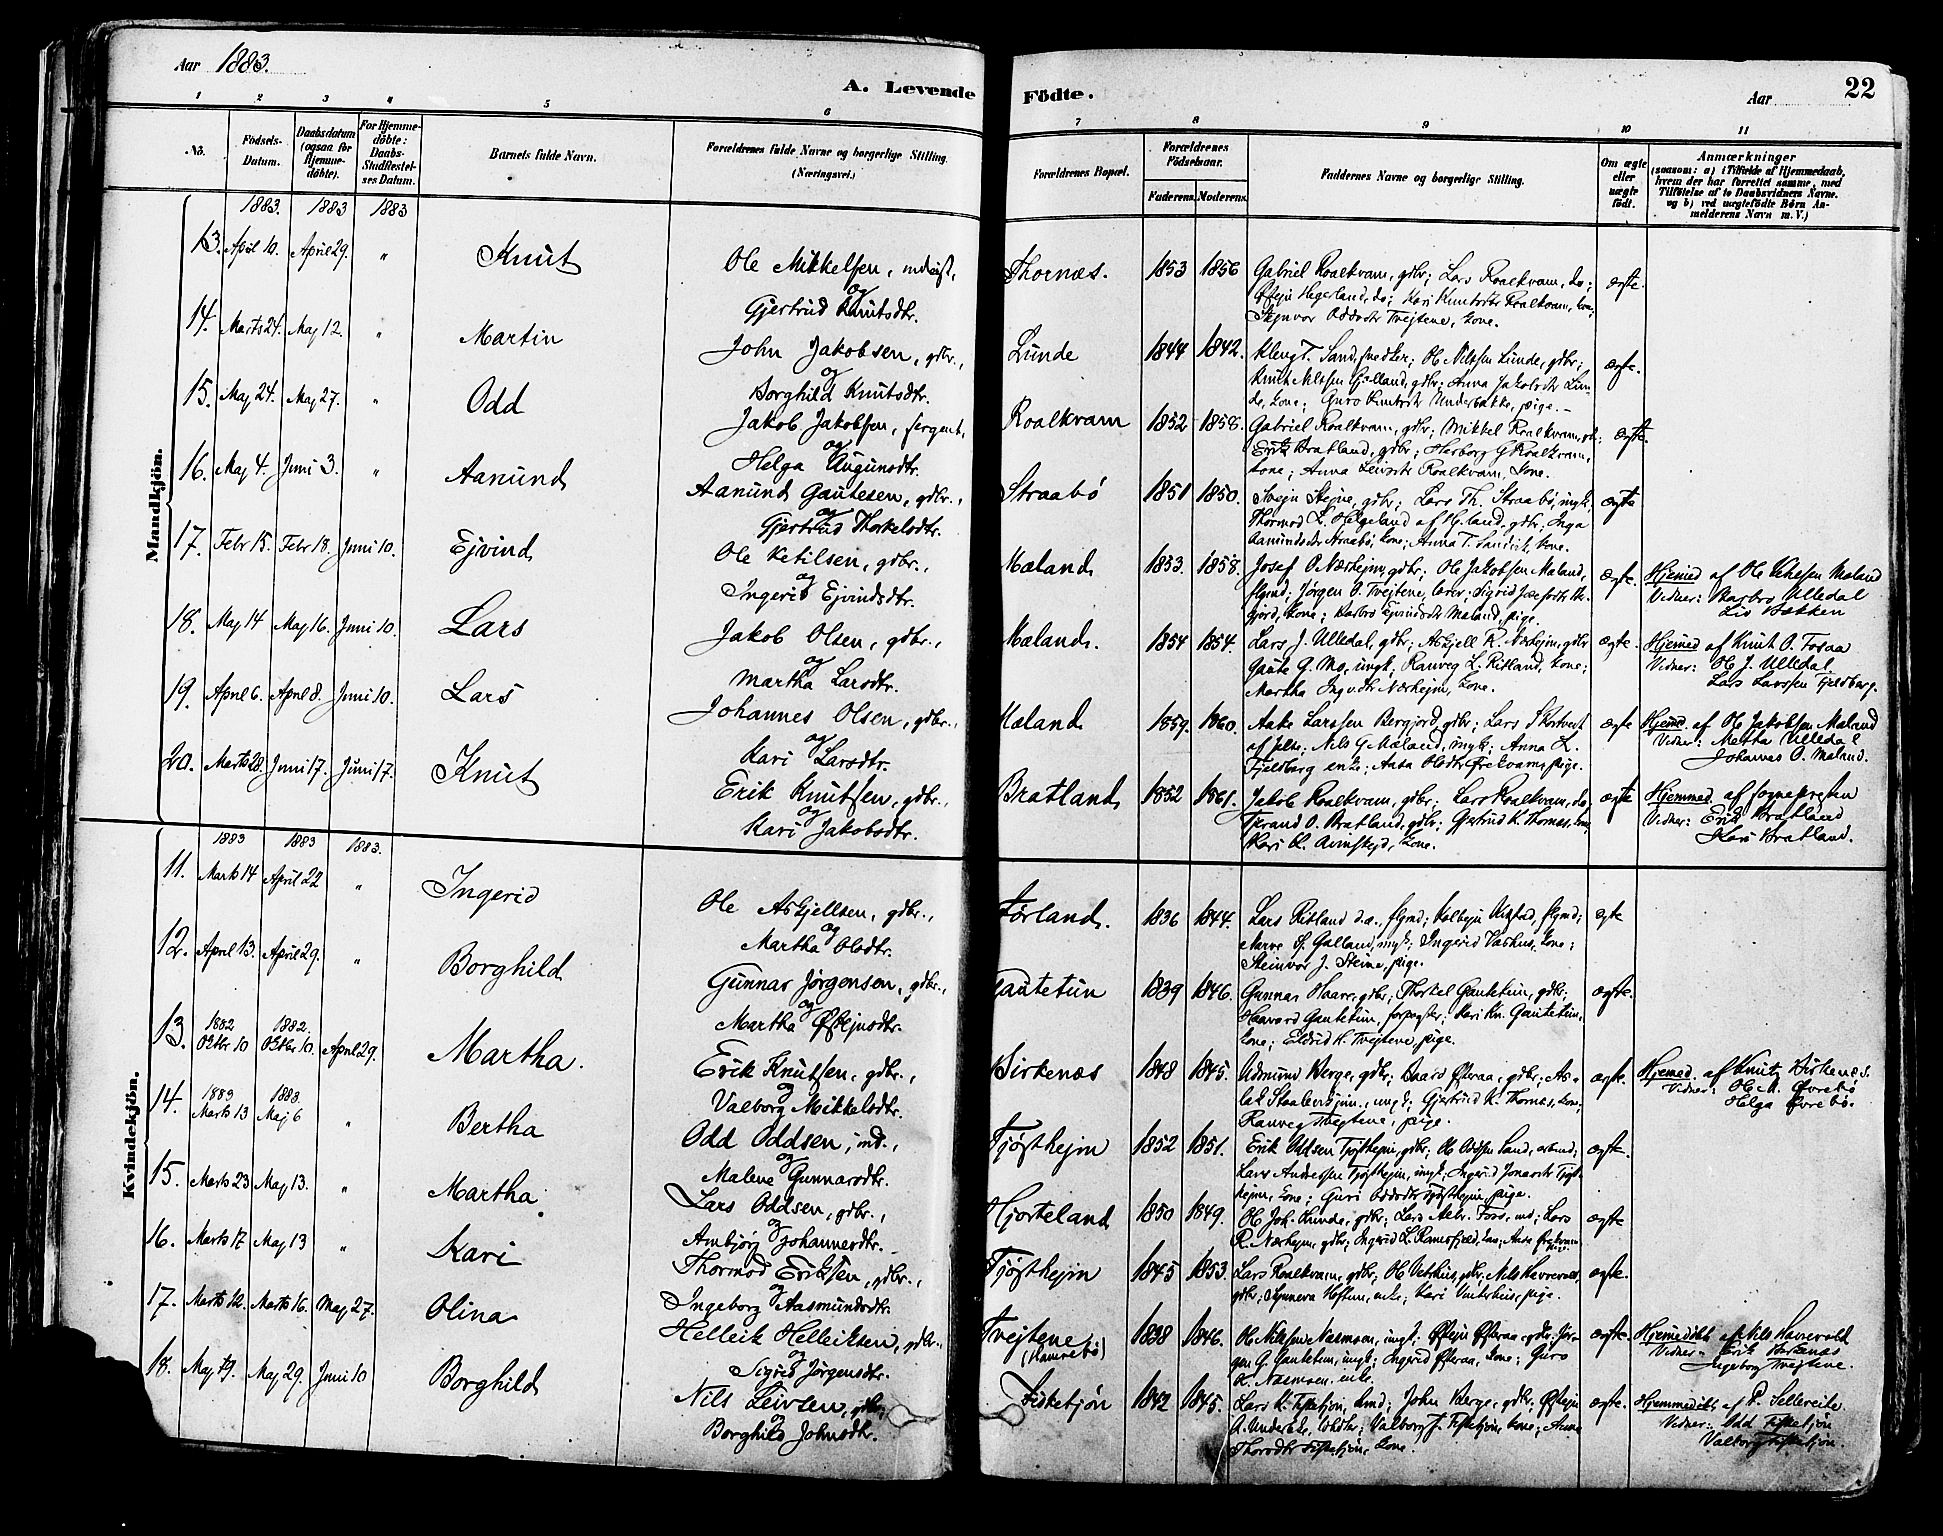 Aar 1883.
A. Levende Födte.
Aar
22
1 2 3 4 5 6 7 8 9 10 11
No.
Födsels-Datum.
Daabsdatum (ogsaa for Hjemme-döbte).
For Hjemme-döbte: Daabs-Stadfæstel-ses Datum.
Barnets fulde Navn.
Forældrenes fulde Navne og borgerlige Stilling. (Næringsvei.)
Forældrenes Bopæl.
Forældrenes Födselsaar.
Faderens. Moderens.
Faddernes Navne og borgerlige Stilling.
Om ægte eller uægte födt.
Anmærkninger
(saasom: a) i Tilfælde af Hjemmedaab,
hvem der har forrettet samme, med
Tilföielse af to Daabsvidners Navne,
og b) ved uægtefödte Börn An-
melderens Navn m. V.)
Mandkjön.
1883. 1883 1883
13. April 10. April 29. " Knut Ole Mikkelsen, og Gjertrud Knutsdtr. Thornæs. 1853 1856 Gabriel Roalkvam, gdbr; Lars Roalkvam, do; Hegerland, do; Kari Knutsdtr Roalkvam, kone; Stejnvor Oddsdtr Tvejtene, kone. ægte.
14. Marts 24. Maj 12. " Martin John Jakobsen, gdbr., og Borghild Knutsdtr. Lunde 1844 1842. T. Sand, Ole Nilssen Lunde, gdbr; Knut Nilssen gdbr; Anna Jakobsdtr Lunde, kone; Guro Knutsdtr Underbakke, pige. ægte.
15. Maj 24. Maj 27. " Odd Jakob Jakobsen, sergent, og Helga Augunsdtr. Roalkvam 1852 1858. Gabriel Roalkvam, gdbr; Mikkel Roalkvam, Erik Bratland, gdbr; Roalkvam, kone; Anna Roalkvam, kone. ægte.
16. Maj 4. Juni 3. " Aanund Aanund Gautesen, gdbr., og Gjertrud Thorkelsdtr. Straabö 1851 1850. Svejn Stejne, gdbr; Lars Th. Straabö, ungk; Thormod L. Helgeland af gdbr; Inga Aanundsdtr Straabö, kone; Anna T. kone. ægte
17. Febr 15. Febr 18. Juni 10. Ejvind Ole Ketilsen, gdbr., og Ingerid Ejvindsdtr. Mæland. 1853. 1858. Josef O Nærhejm, gdbr; Ole Jakobsen Mæland, Jørgen O. Tvejtene, lærer; Sigrid kone; Barbro Ejvindsdtr Mæland, pige. ægte. Hjemed af Ole Mæland Vidner: Barbro Ulledal Liv Bakken
18. Maj 14 Maj 16. Juni 10. Lars Jakob Olsen, gdbr., og Martha Larsdtr. Mæland. 1854 1854. Lars J. Ulledal, gdbr; Askjell R. Nærhejm, gdbr Gaute G. Mo, ungk; Ranveg L. Ritland, kone; Martha Nærhejm, kone. ægte. Hjemed af Knut O. Fosaa Vidner: Ole J. Ulledal. Lars Larssen Fjeldberg.
19. April 6. April 8. Juni 10. Lars Johannes Olsen, gdbr., og Kari Larsdtr. Mæland 1859. 1860. Aake Larssen Bergjord, gdbr; Lars Nils G Mæland, ungk; Anna L. Fjeldberg enke; Anna Olsdtr pige. ægte Hjemd. af Ole Jakobsen Mæland Vidner: Metha Ulledal Johannes O. Mæland.
20. Marts 28. Juni 17. Juni 17. Knut Erik Knutsen, gdbr., og Kari Jakobsdtr. Bratland 1852 1861. Jakob Roalkvam, gdbr; Lars Roalkvam, do; O. Bratland, gdbr; Gjertrud K. Thornæs, kone; Kari kone. ægte Hjemmed af sognepresten Vidner: Erik Bratland Kari Bratland.
Kvindekjön.
1883 1883 1883.
11. Marts 14 April 22 " Ingerid Ole Askjellsen, gdbr., og Martha Olsdtr. Førland. 1836 1844. Lars Ritland d.æ., Kolbejn Narve S. Galland, ungk; Ingerid kone; Steinvor J. Steine, pige. ægte
12. April 13. April 29. " Borghild Gunnar Jørgensen, gdbr., og Martha Østejnsdtr. Gautetun 1839 1846. Gunnar gdbr; Thorkel Gautetun, gdbr; Haavard Gautetun, Kari Kn. Gautetun, kone; Eldrid K. Tvejtene, pige. ægte.
13. 1882 Oktbr 10 1882. Oktbr 10. April 29. Martha. Erik Knutsen, gdbr., og Valborg Mikkelsdtr. Birkenæs 1848 1845. Berge, gdbr; Baard Østeraa, gdbr; ungk; Gjertrud K. Thornæs, kone; Ranveg Tvejtene, pige. ægte. Hjemed. af Knut Birkenæs. Vidner: Ole Øvrebö Helga Øvrebö.
14. 1883 Marts 13 1883. Maj 6 " Bertha Odd Oddsen, ind., og Malene Gunnarsdtr. Tjøsthejm 1852 1851. Erik Oddsen Tjøsthejm, gdbr; Ole Oddsen Sand, arbmd; Lars Andersen Tjøsthejm, ungk; Ingerid Jonasdtr Tjøsthejm, kone; Guri Oddsdtr Tjøsthejm, pige. ægte.
15. Marts 23 Maj 13. " Martha. Lars Oddsen, gdbr., og Ambjørg Johannesdtr. Hjorteland 1850 1849. Ole Joh. Lunde, gdbr; Lars Foss, ind; Lars R. Nærhejm, gdbr; Ingerid L. kone; Anna pige. ægte
16. Marts 17 Maj 13 " Kari Thormod Eriksen, gdbr., og Ingeborg Aasmundsdtr. Tjøsthejm 1845 1853. Lars Roalkvam, gdbr; Ole gdbr; Nils gdbr; Synneva enke; Kari pige. ægte.
17. Marts 12. Marts 16. Maj 27. Olina Helleik Helleiksen, gdbr., og Sigrid Jørgensdtr. Tvejtene (Havrebö) 1838 1846. Ole Nilssen Næsmoen, ungk; Østejn Østeraa, gdbr; Jørgen G. Gautetun, ungk; Ingerid Østeraa, kone; Guro K. Næsmoen, enke. ægte. Hjemmedöbt af Nils Havrevold Vidner: Erik Birkenæs Ingeborg Tvejtene.
18. Maj 19. Maj 29. Juni 10 Borghild Nils Leivsen, gdbr. og Borghild Johnsdtr. Fisketjön 1842 1845. Lars K. Fisketjön, John Berge, gdbr; Østejn Valborg J. Fisketjön, kone; Anna Fisketjön, kone. ægte. Hjemmedöbt af P. Sellereite Vidner: Odd Fisketjön Valborg Fisketjön.